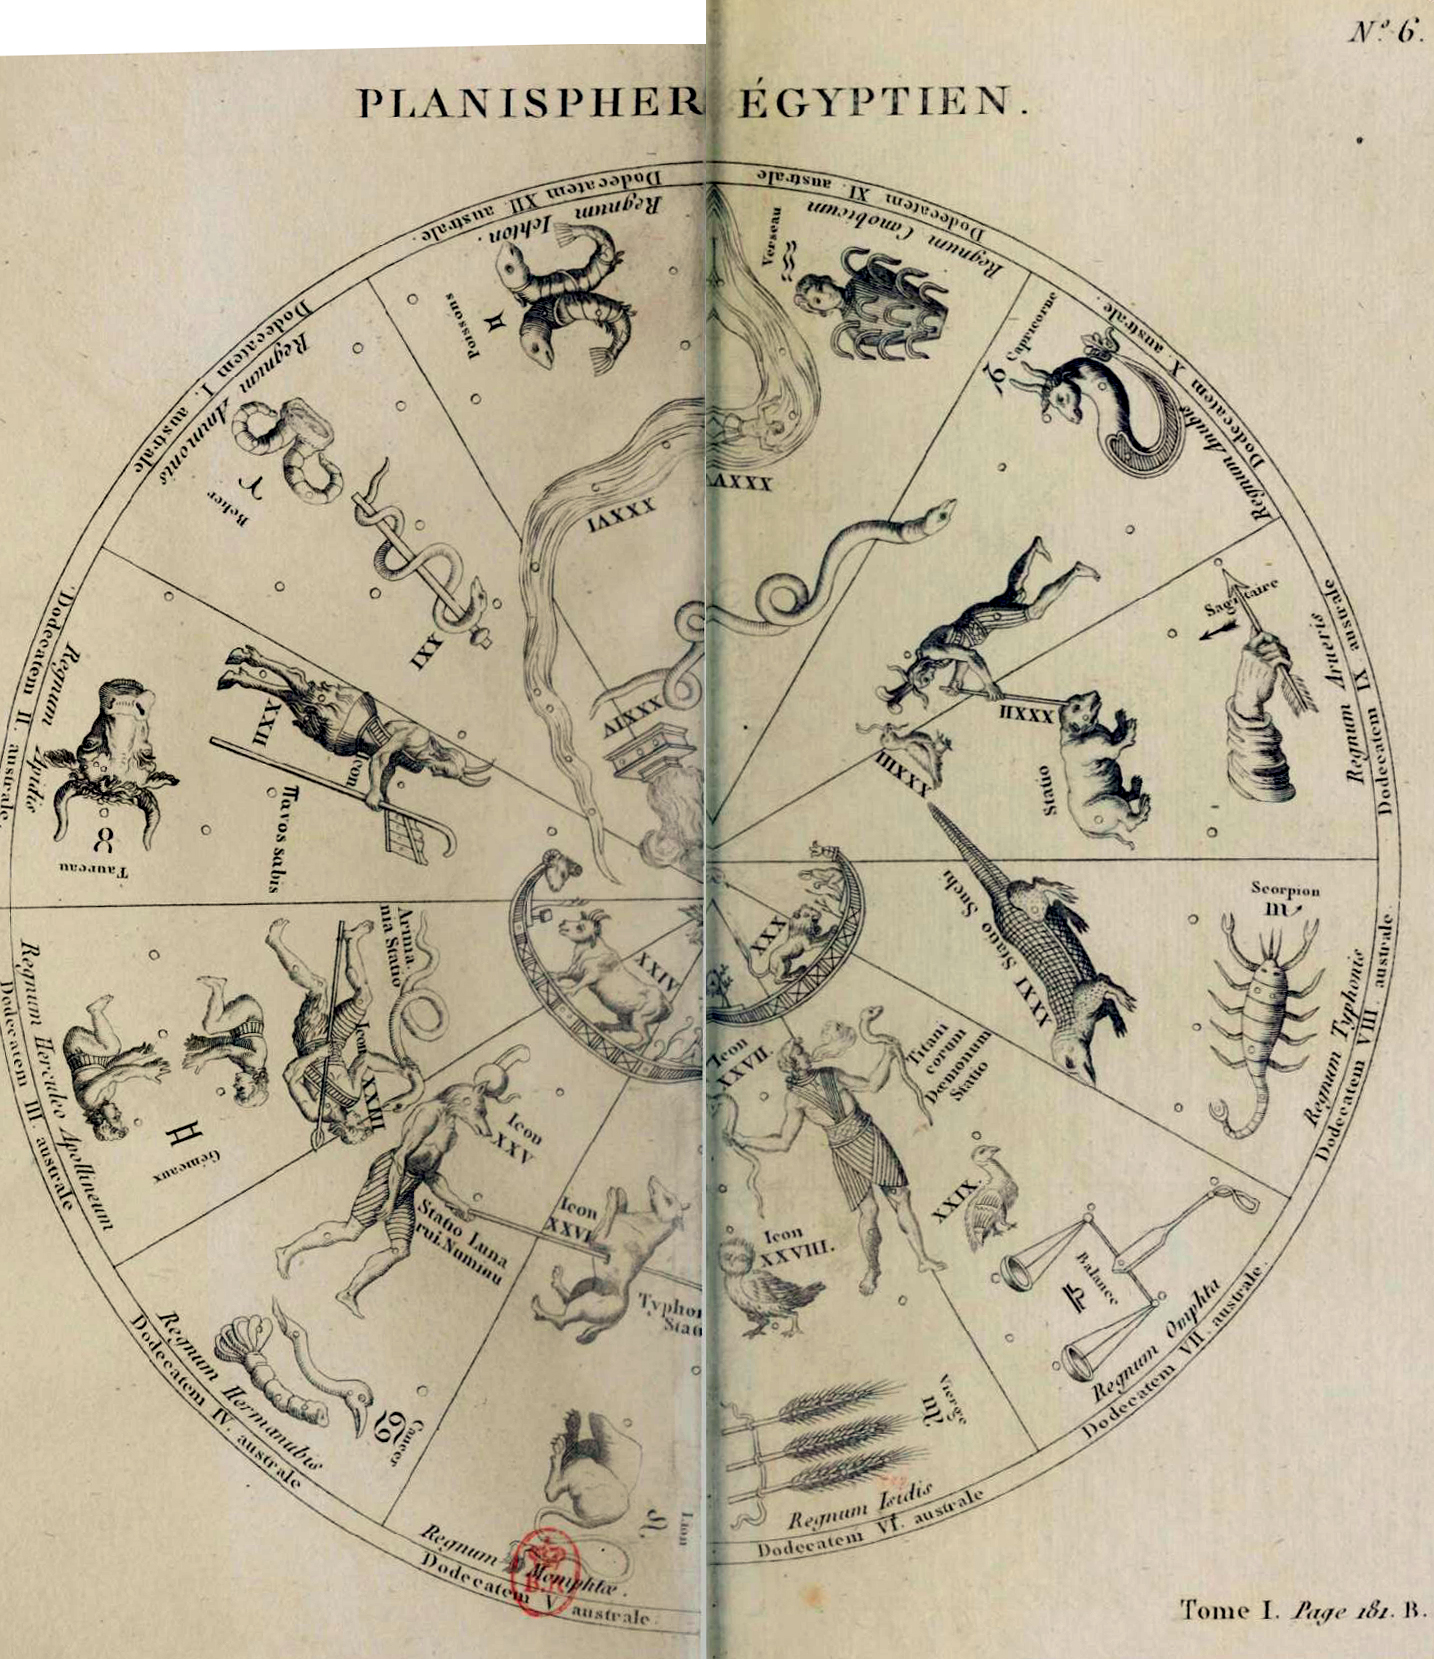 Nº 6.
PLANISPHER ÉGYPTIEN.
Dodecatem XII. australe.
Regnum Ichton.
Poissons
♓
Dodecatem XI. australe
Regnum Canobicum
Verseau
♒
Dodecatem X. australe.
Regnum Anubis
Capricorne
♑
Dodecatem IX australe
Regnum Arueris
Sagittaire
♐
Dodecatem VIII. australe
Regnum Typhonis
Scorpion
♏
Dodecatem VII. australe.
Regnum Omphta
Balance
♎
Dodecatem VI. australe
Regnum Isidis
Vierge
♍
Dodecatem V australe.
Regnum Momphtæ.
Lion
♌
Dodecatem IV. australe
Regnum Hermanubis
Cancer
♋
Dodecatem III. australe
Regnum Herculeo Apollineum
Gémeaux
♊
Dodecatem II. australe.
Regnum Apidis
Taureau
♉
Dodecatem I. australe
Regnum Ammonis
Belier
♈
XXI
Icon
XXII
Παvos sabis
Icon
XXIII
Statio
XXIV
Icon
XXV
Statio Luna
rui. Numinu
Icon
XXVI
Typhon
Stati
Icon
XXVII.
Titani
corum
Dæmonum
Statio
Icon
XXVIII.
XXIX.
XXX
XXXI Statio Suchi
XXXII
Statio
XXXIII
XXXIV
XXXV
XXXVI
B.R.
Tome I. Page 181. B.